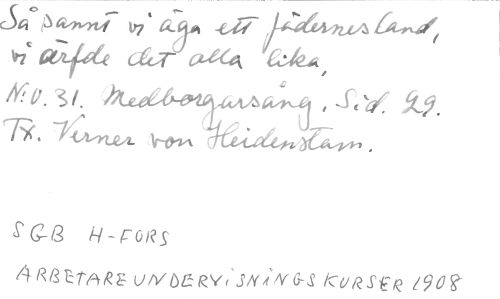 Så sannt vi äga ett fädernesland,
vi ärfde det alla lika,
N:o. 31. Medborgarsång. Sid. 29.
Tx. Verner von Heidenstam.
SGB H-FORS
ARBETAREUNDERVISNINGSKURSER 1908